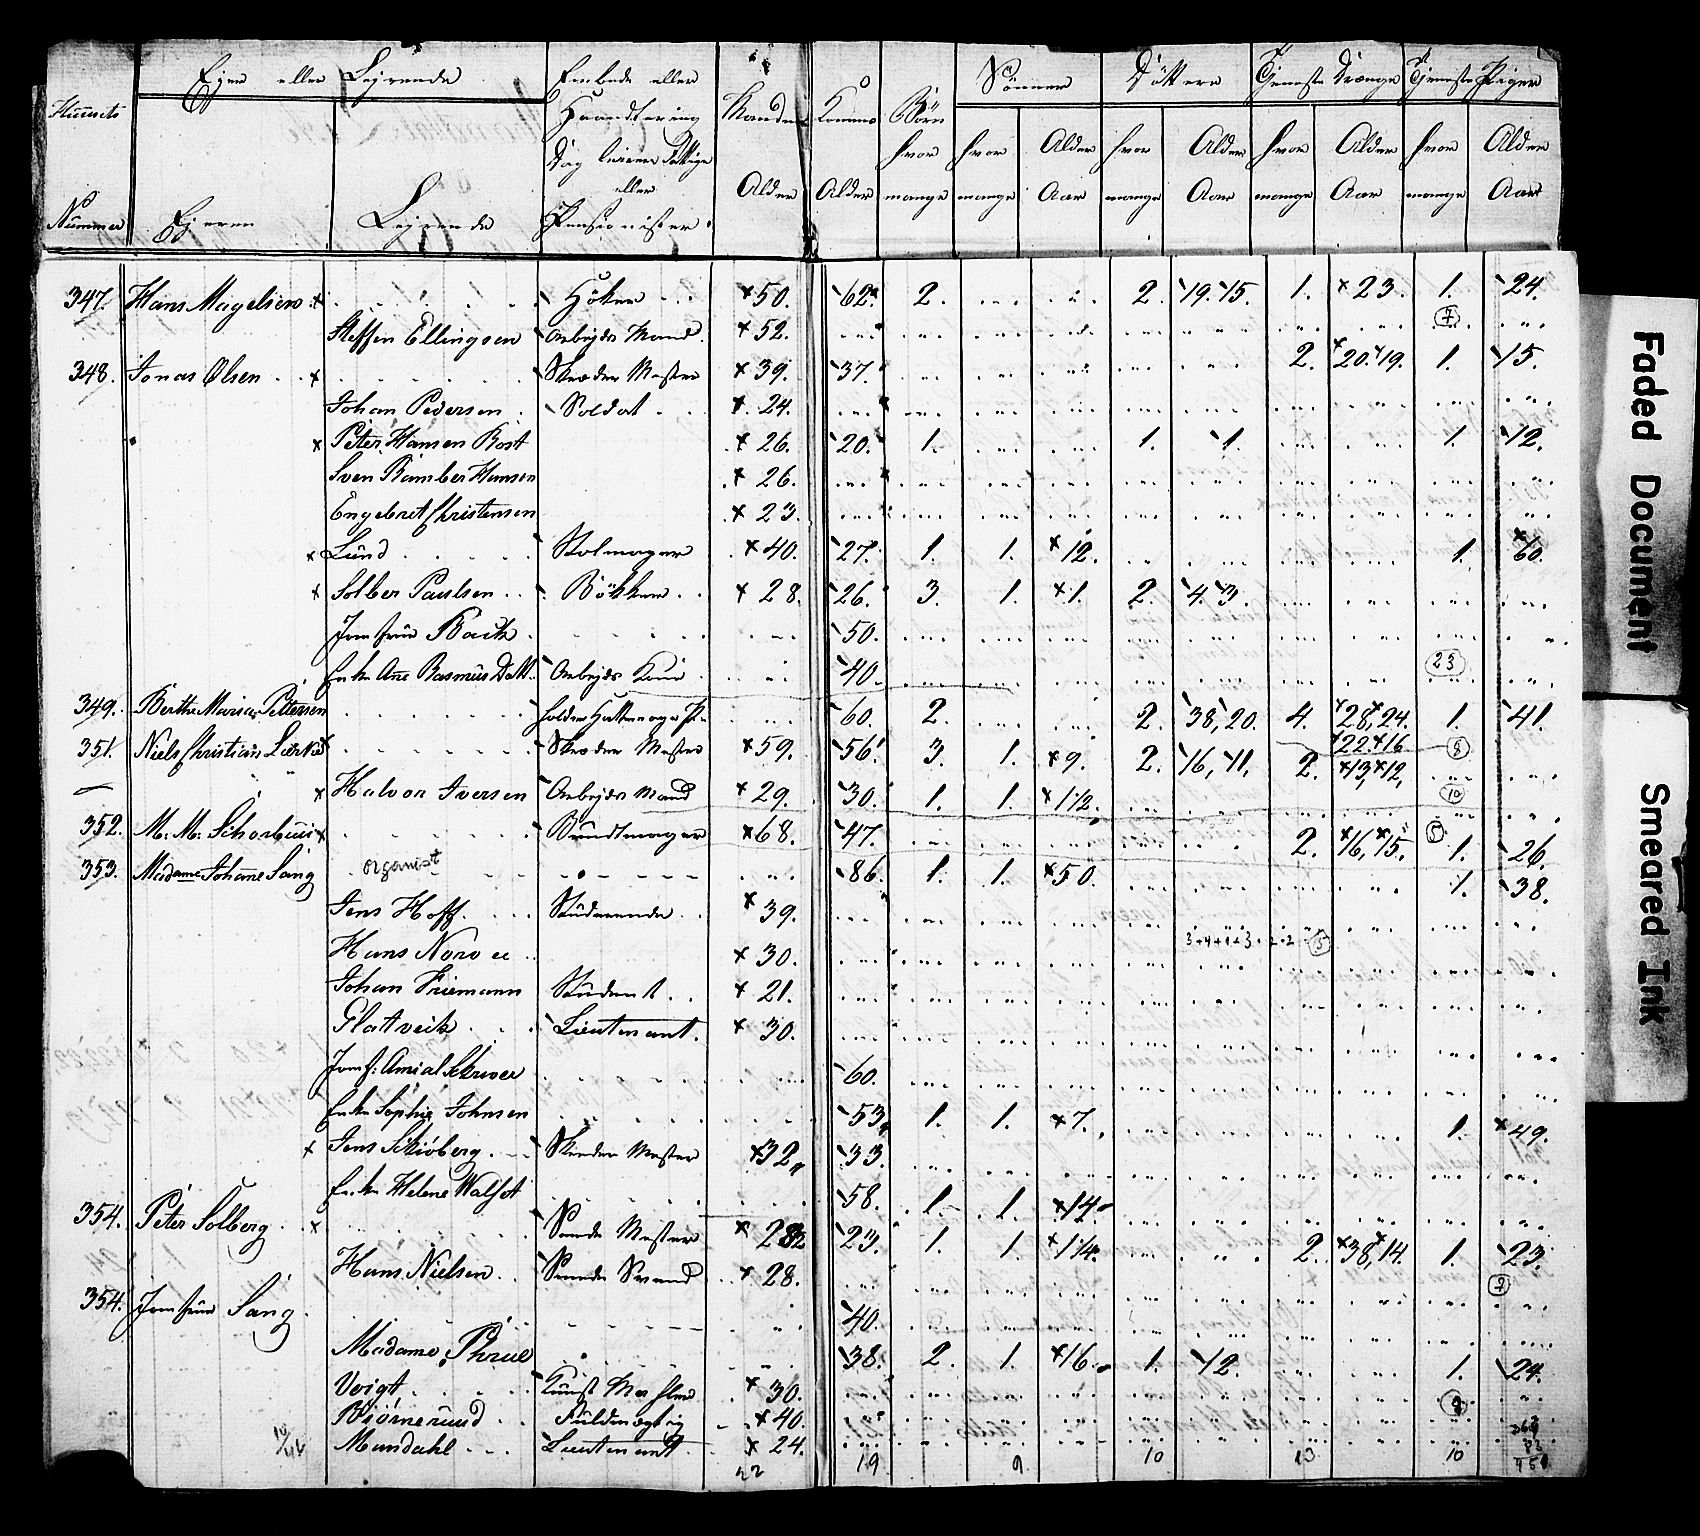 Huusets Nummer | Ejer eller Lejende | Embede eller Haandtering Dag leiere Fattige eller Pensionister | Mandens Alder | Konens Alder | Børn hvor mange | Sønner | Døttere | Tjeneste Drænge | Tjeneste Piger
Ejeren | Lejende | hvor mange | Alder Aar | hvor mange | Alder Aar | hvor mange | Alder Aar | hvor mange | Alder Aar
347. Hans Magelsen Høker 50. 62. 2. 2. 19. 15. 1. 23. 1. 24.
Steffen Ellingsen Arbejds Mand 52. 7
348. Jonas Olsen Skræder Mester 39. 37. 2. 20. 19. 1. 15.
Johan Pedersen Soldat 24.
Peter Hansen Rost 26. 20. 1. 1. 1. 1. 12.
Sven Hansen 26.
Engebret Christensen 23.
Lund Stolmager 40. 27. 1. 1. 12. 1. 60.
Solber Paulsen Bøkker 28. 26. 3. 1. 1. 2. 4. 3.
Jomfrue Back 50.
Enke Ane Rasmus Datt. Arbejds Kone 40. 23
349. Berthe Maria Pettersen holder Hattemager 60. 2. 2. 38, 20. 4. 28, 24. 22. 16 1. 41.
351. Niels Christian Skræder Mester 59. 56. 3. 1. 9. 2. 16, 11. 2. 13, 12, 8
Halvor Iversen Arbejds Mand 29. 30. 1. 1. 1 1/2. 10
352. M. M. Bundtmager 68. 47. 2. 16, 15. 5 1. 26.
353. Madame Johanne Sang organist 86. 1. 1. 50. 1. 38.
Jens Hoff. Studerende 39.
Hans 30. 15
Johan Friemann Student 21.
Platveik Lieutenant. 30.
Jomf: 60.
Enke Sophie Johnsen 53. 1. 1. 7. 1. 49.
Jens Skiöberg. Mester 32. 33.
Enke Helene 58. 1. 1. 14.
354. Peter Solberg. Mester 28 23. 1. 1. 1 1/4. 2. 38, 14. 1. 23.
Hans Nielsen. Svend 28. 7
354. Jomfrue Sang. 40.
Madame 38. 2. 1. 16. 1. 12. 1. 24.
Voigt Kunst Mahler 30.
Biörnerund Fuldmægtig 40.
Mandahl Lieutenant. 24.
22 19 9 10 13 10
Faded Document
Smeared Ink